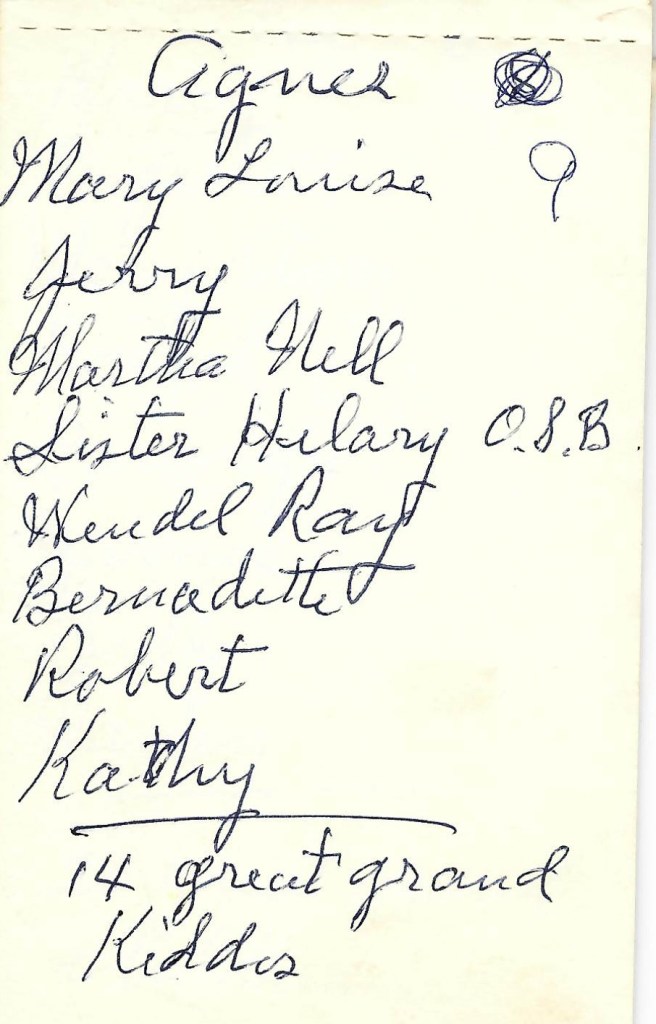 Agnes
Mary Louise 9
Jerry
Martha Nell
Sister Hilary O.S.B.
Wendel Ray
Bernadette
Robert
Kathy
14 great grand
Kiddos